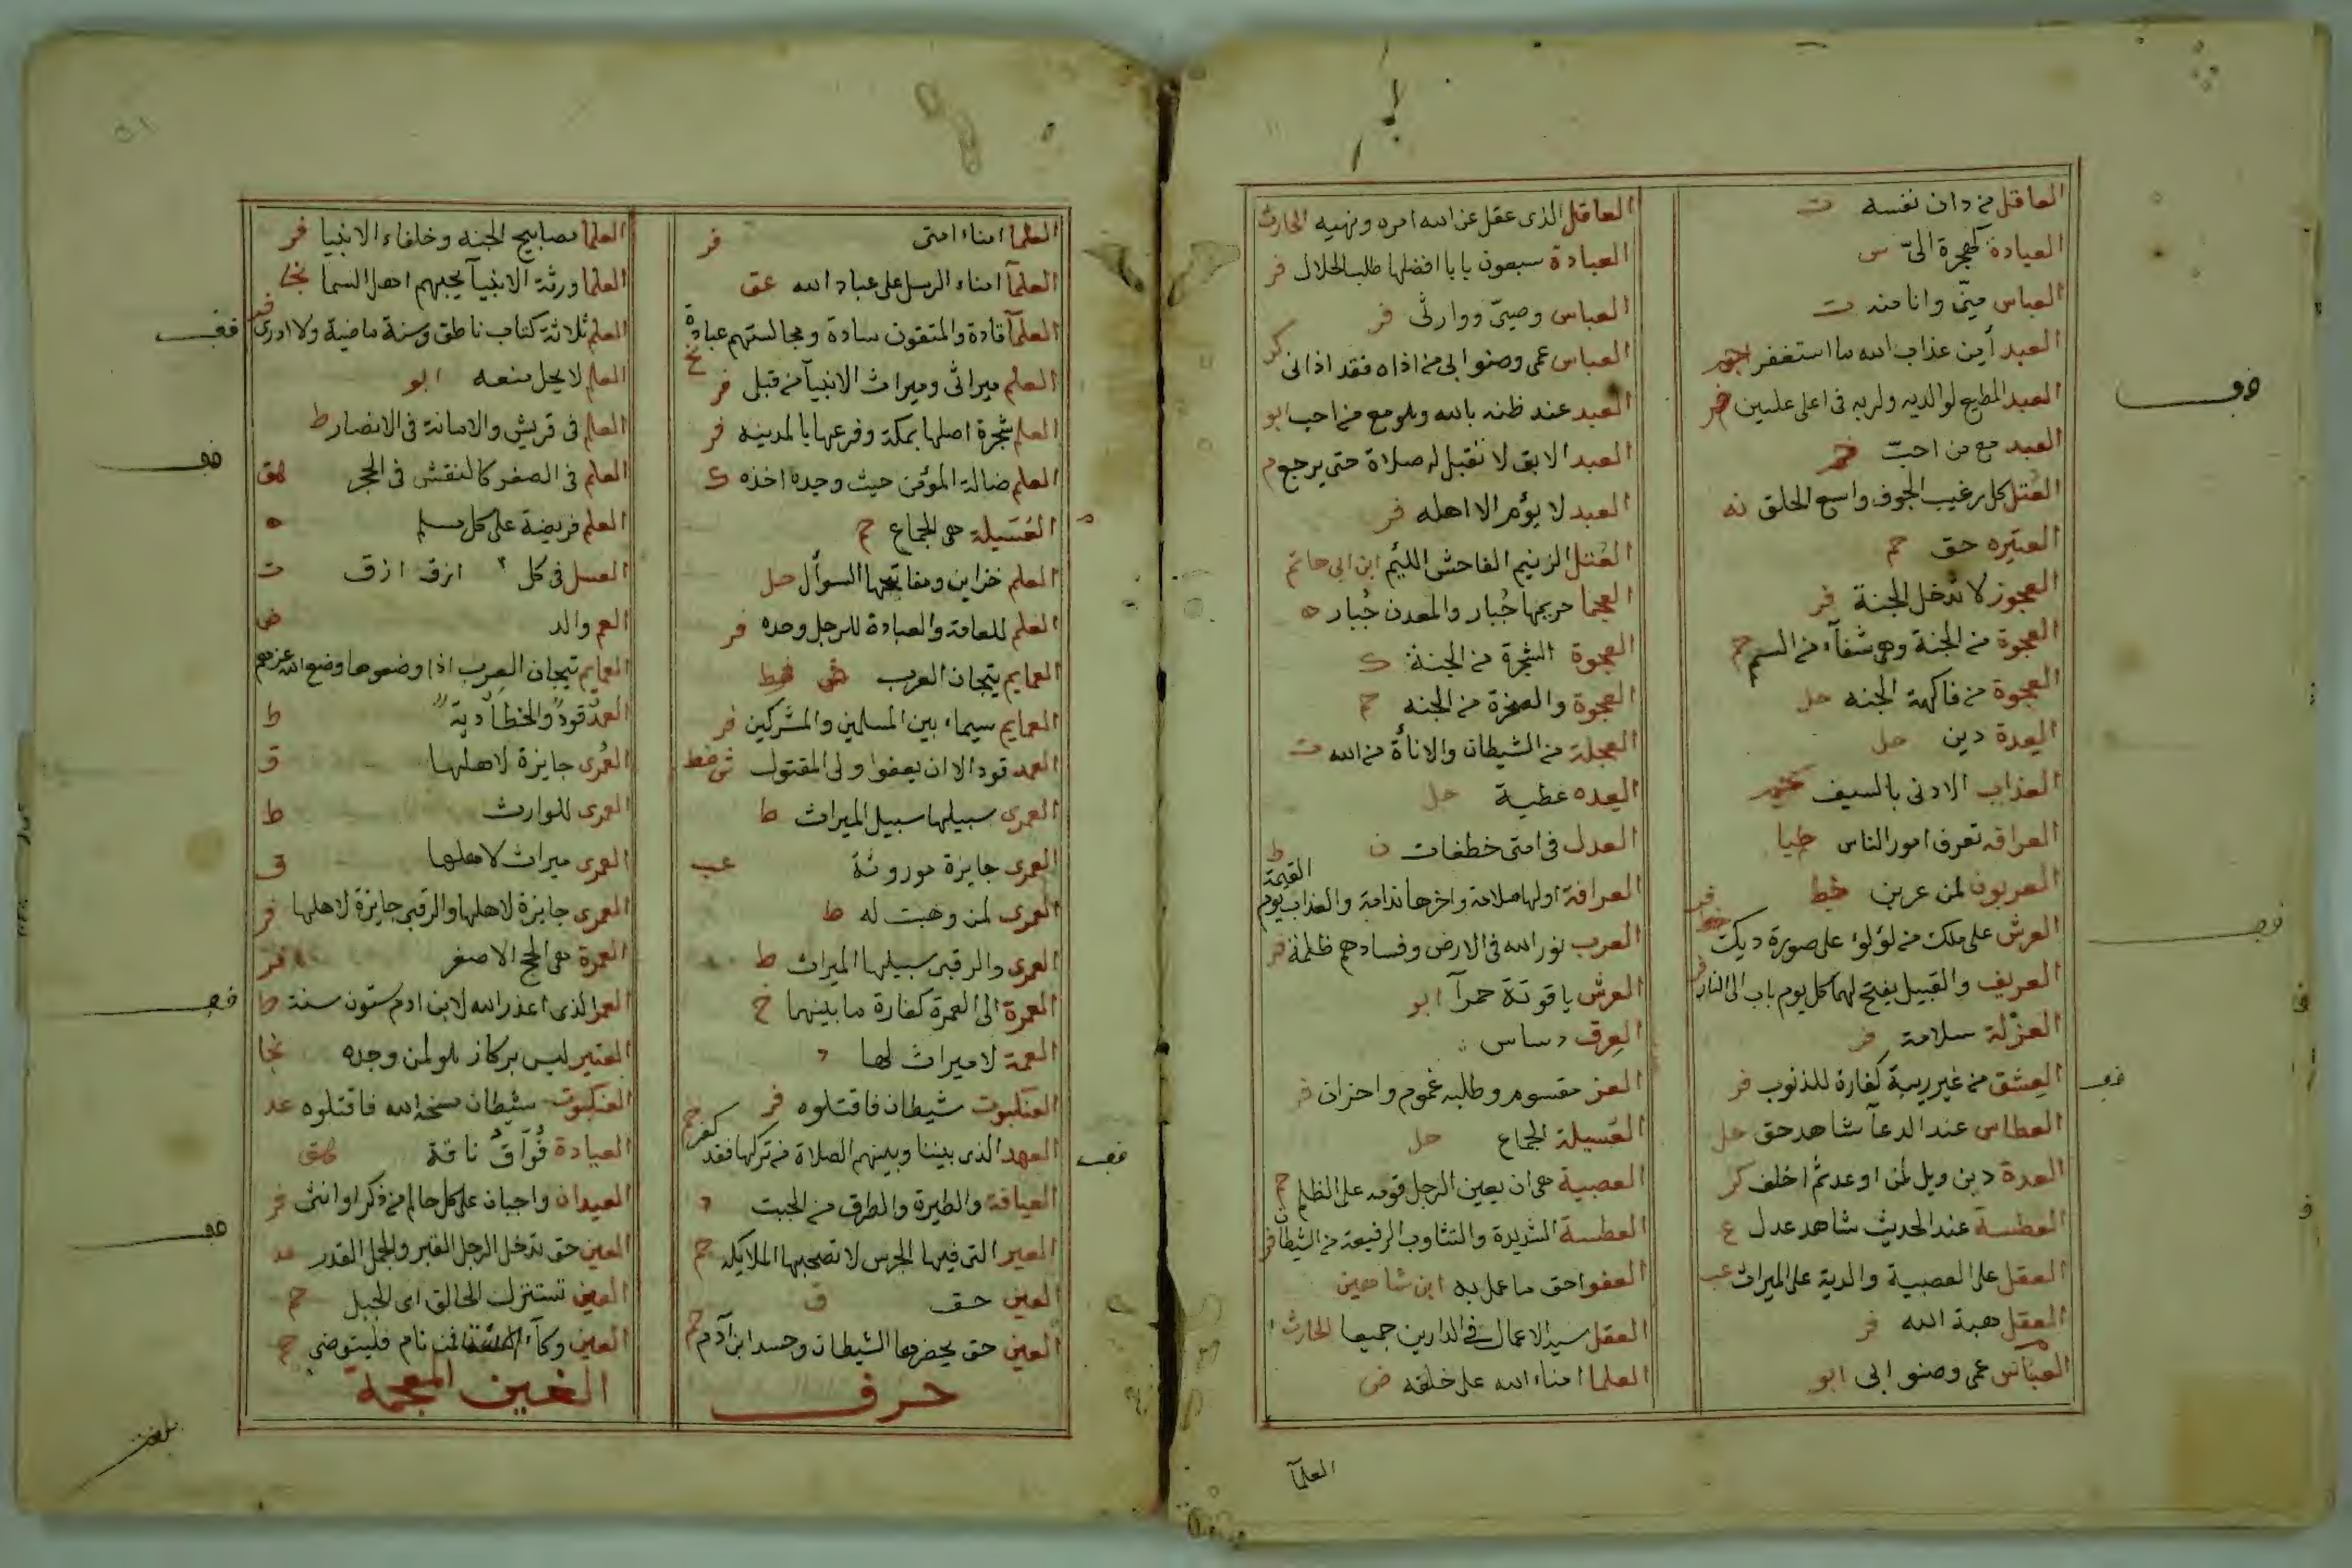 العاقل من دان نفسه ت
العبادة كهجرة الىّ س
العباس منّى وانا منه ت
العبد أمن عذاب الله ما استغفر
العبد المطيع لوالديه ولربه فى اعلى عليين فر
العبد مع من احبّ حم
العتل كل رغيب الجوف واسع الحلق
العتيره حق حم
العجوز لا تدخل الجنة فر
العجوة من الجنة وهى شفآء من السم حم
العجوة من فاكهة الجنه حل
العدة دين حل
العذاب الادنى بالسيف
العرافه تعرف امور الناس طيا
العربون لمن عربن خط
العرش على ملك من لؤلؤ على صورة ديك
العريف والقبيل يفتح لهما كل يوم باب الى النار
العزلة سلامة فر
العشق من غير ريبة كفارة للذنوب فر
العطاس عند الدعآ شاهد حق حل
العدة دين ويل لمن اوعد ثم اخلف كر
العطسة عند الحديث شاهد عدل ع
العقل على العصبية والدية على الميراث عب
العقل هبة الله فر
العباس عمى وصنو ابى ابو
العاقل الذى عقل عن الله امره ونهيه الحارث
العبادة سبعون بابا افضلها طلب الحلال فر
العباس وصيّى ووارثى فر
العباس عمى وصنو ابى من اذاه فقد اذانى كر
العبد عند ظنه بالله وهو مع من احب ابو
العبد الابق لا تقبل له صلاة حتى يرجع م
العبد لا يؤم الا اهله فر
العُتل الزنيم الفاحش اللئيم ابن ابى حاتم
العجما جرحها جُبار والمعدن جُبار ه
العجوة الشجرة من الجنة ك
العجوة والصخرة من الجنه حم
العجلة من الشيطان والاناة من الله ت
العده عطية حل
العدل فى امتى خطفات ن
العرافة اولها ملامة واخرها ندامة والعذاب يوم القيمة ط
العرب نور الله فى الارض وفسادهم ظلمة فر
العرش ياقوتة حمرآ ابو
العرق دساس
العز مقسوم وطلبه غموم واحزان فر
العسيلة الجماع حل
العصبية هى ان يعين الرجل قومه على الظلم
العطسة الشديدة والتثاوب الرفيعة من الشيطان
العفو احق ما عمل به ابن شاهين
العقل سيد الاعمال فى الدارين جميعا الحارث
العلما امناء الله على خلقه ض
العلمآ
العلما امناء امتى فر
العلمآ امناء الرسل على عباد الله عق
العلمآ قادة والمتقون سادة ومجالستهم عبادة
العلم ميراثى وميراث الانبيآ من قبلى فر
العلم شجرة اصلها بمكة وفرعها بالمدينه فر
العلم ضالة المؤمن حيث وجده اخذه ك
العُسَيلة هى الجماع حم
العلم خزاين ومفاتحها السوأل حل
العلم للعامة والعبادة للرجل وحده فر
العمايم تيجان العرب
العمايم سيماء بين المسلمين والمشركين فر
العمد قود الا ان يعفوا ولى المقتول
العمرى سبيلها سبيل الميراث ط
العمرى جايزة موروثة عب
العمرى لمن وهبت له ط
العمرى والرقبى سبيلها الميراث ط
العمرة الى العمرة كفارة ما بينهما خ
العمة لا ميراث لها د
العنكبوت شيطان فاقتلوه فر
العهد الذى بيننا وبينهم الصلاة من تركها فقد كفر
العيافة والطيرة والطرق من الجبت د
العير التى فيها الجرس لا تصحبها الملايكه حم
العين حق ق
العين حق يحضرها الشيطان وحسد ابن آدم حم
حرف
العلما مصابيح الجنه وخلفاء الانبيا فر
العلما ورثة الانبيآ يحبهم اهل السما نجا
العلم ثلاثة كتاب ناطق وسنة ماضية ولا ادرى فر
العلم لا يحل منعه ابو
العلم فى قريش والامانة فى الانصار ط
العلم فى الصغر كالنقش فى الحجر هق
العلم فريضة على كل مسلم ه
العسل فى كل ازق ازق ت
العم والد ض
العمايم تيجان العرب اذا وضعوها وضع الله عزهم
العمد قود والخطأ دية ط
العمرى جايزة لاهلها ق
العمرى للوارث ط
العمرى ميراث لاهلها ق
العمرى جايزة لاهلها والرقبى جايزة لاهلها فر
العمرة هى الحج الاصغر فر
العمر الذى اعذر الله لابن ادم ستون سنة ط
العنبر ليس بركاز هو لمن وجده نجا
العنكبوت شيطان مسخه الله فاقتلوه عد
العيادة فُوآق ناقة هق
العيدان واجبان على كل حالم من ذكر او انثى فر
العين حق تدخل الرجل القبر والجمل القدر عد
العين تستنزل الحالق اى الجبل حم
العين وكآء السه فمن نام فليتوضى حم
الغين المعجمة